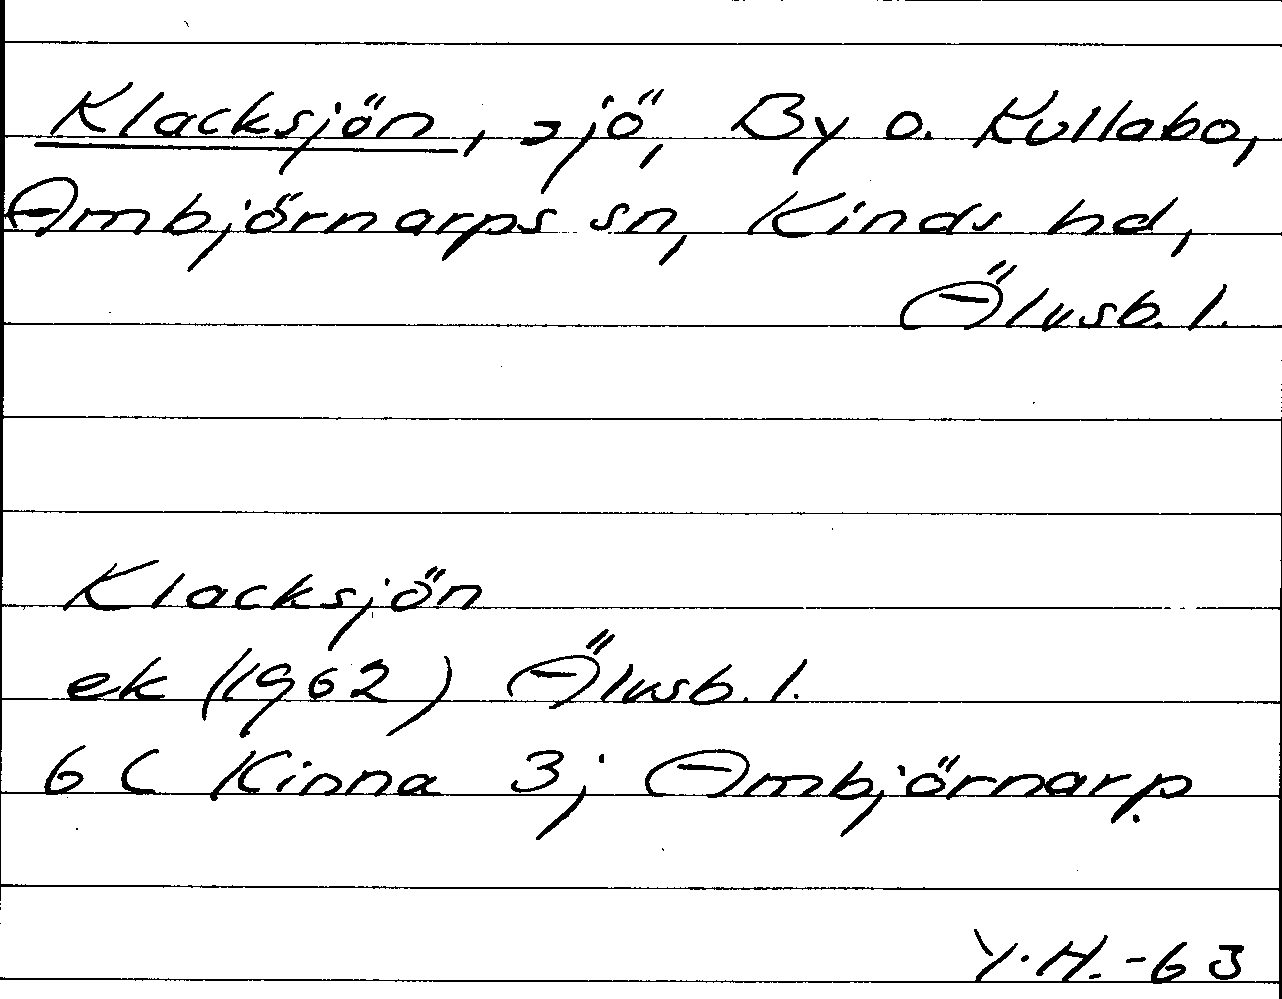 Klacksjön, sjö, By o. Kullabo,
Ambjörnarps sn, Kinds hd,
Älvsb. l.
Klacksjön
ek (1962) Älvsb. l.
6 C Kinna 3j Ambjörnarp.
Y.H.-63